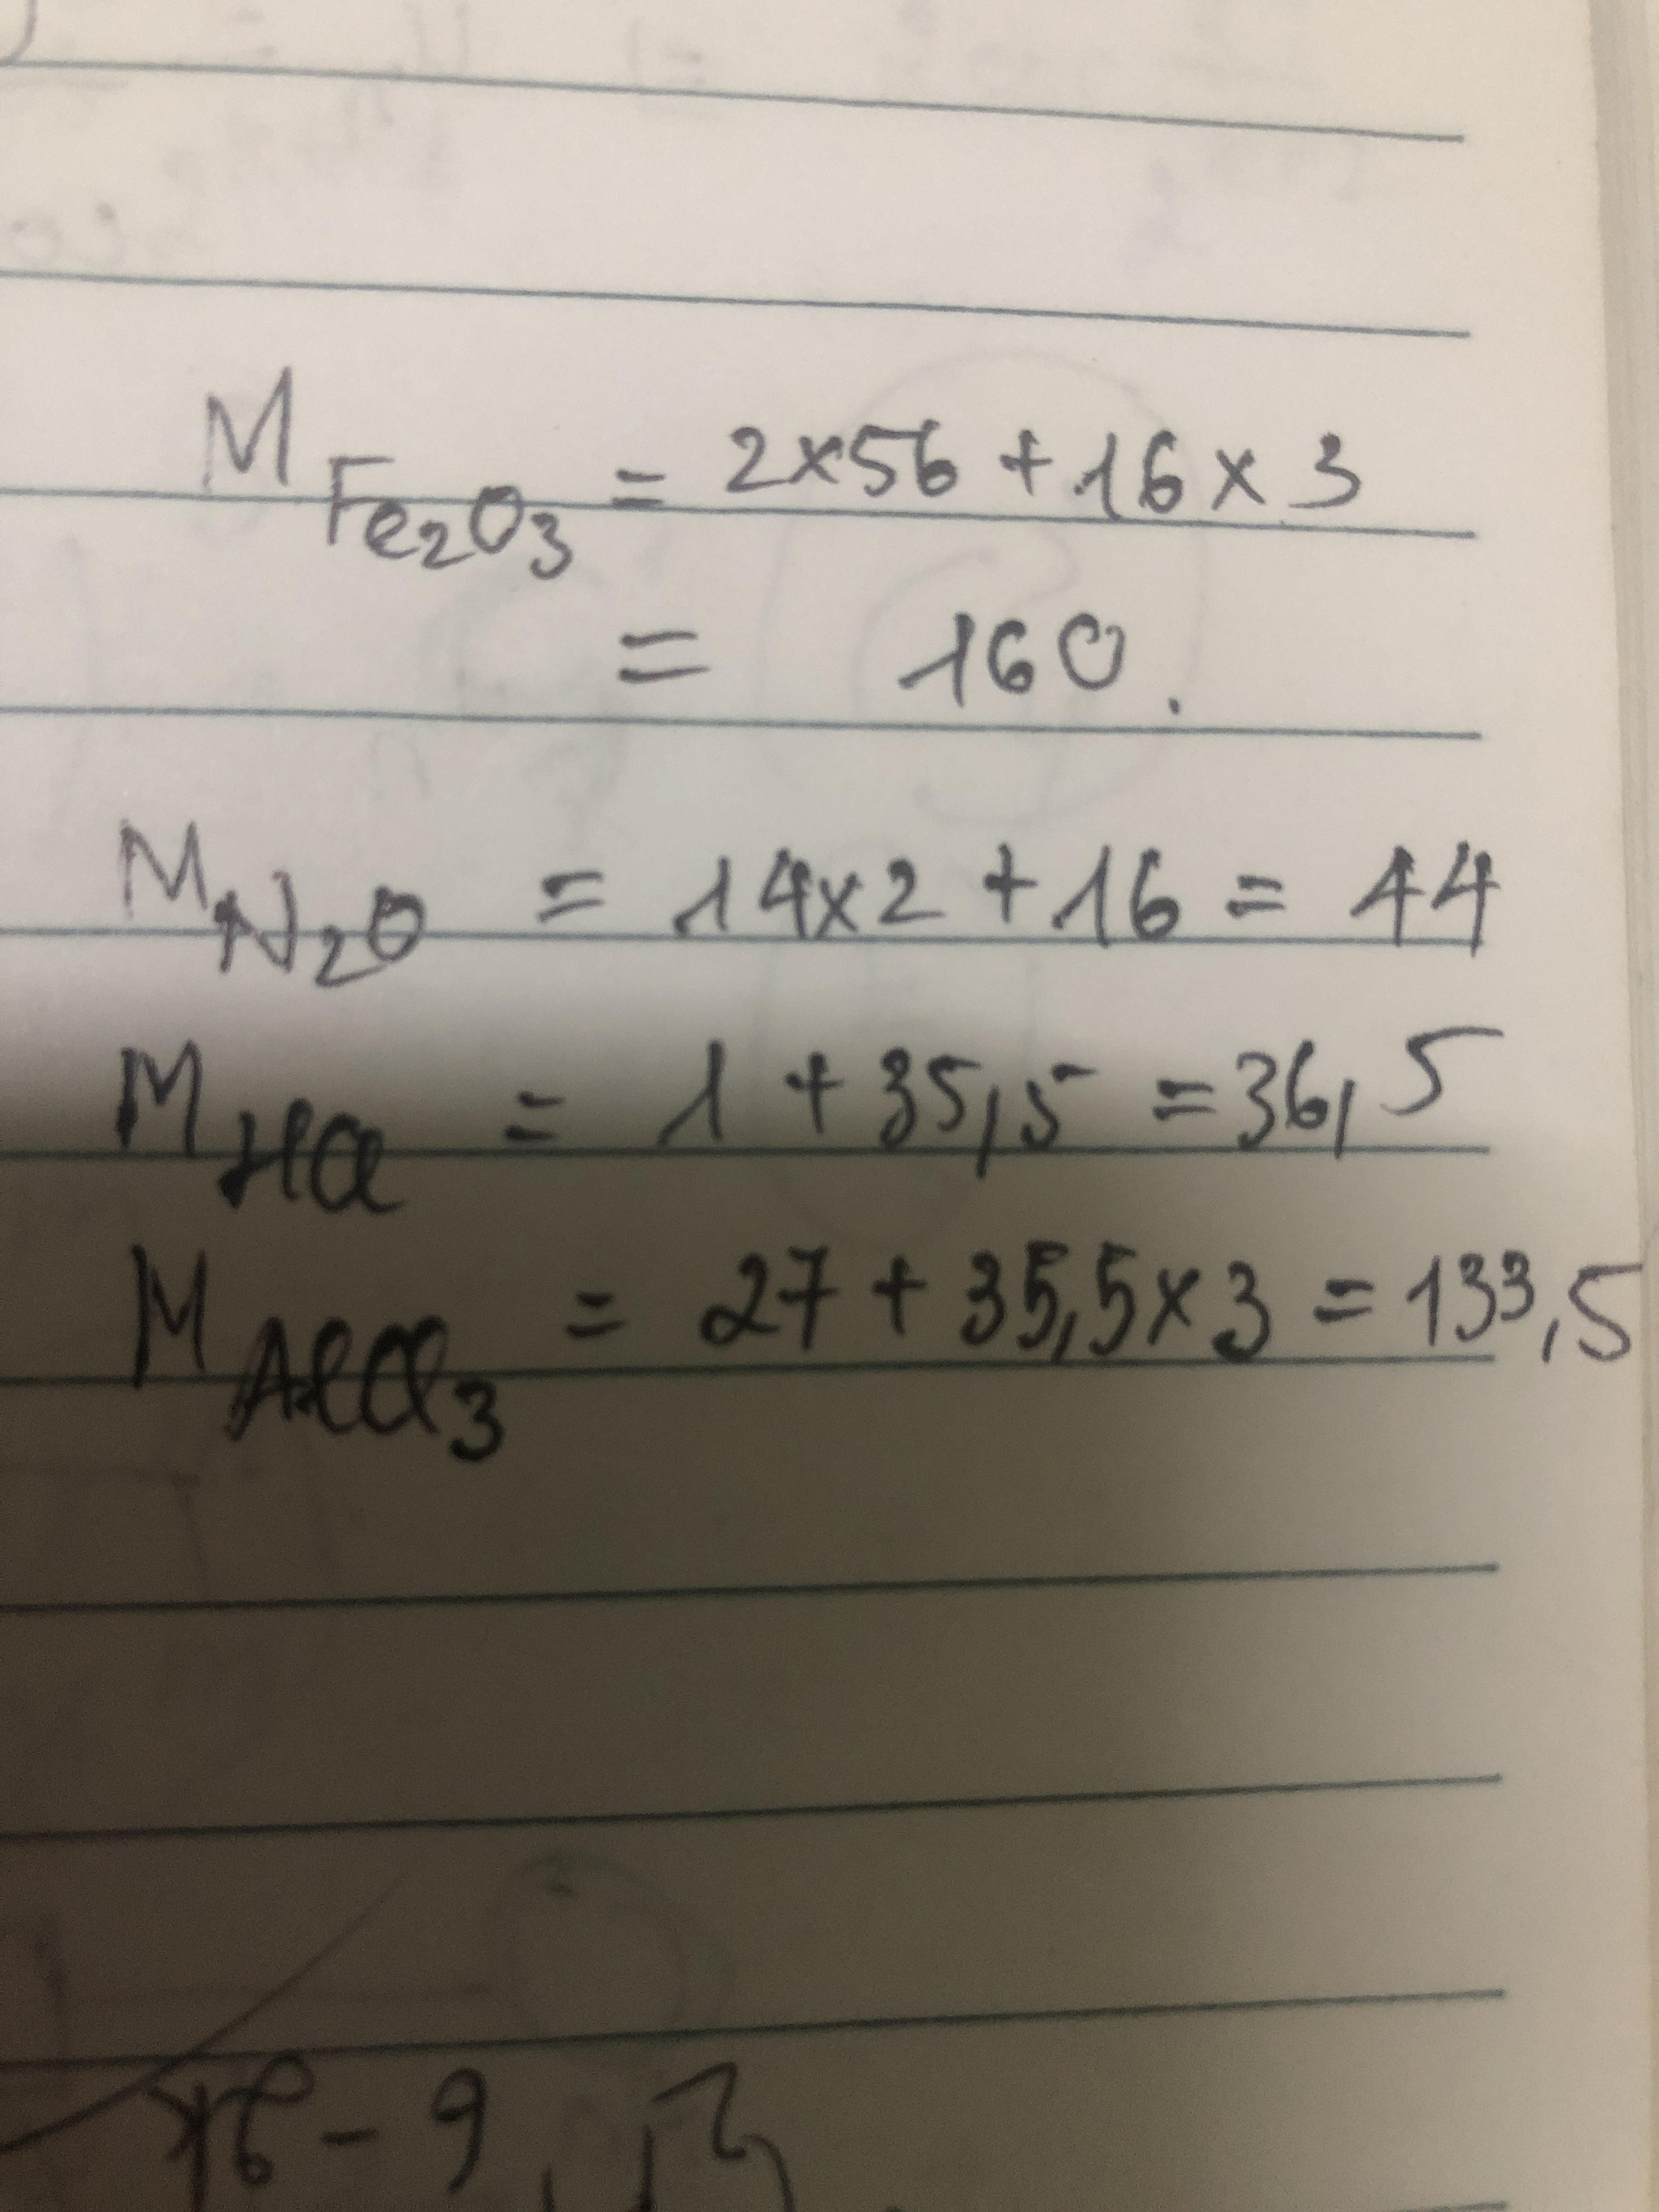 M Fe₂O₃ = 2x56 + 16 x 3
= 160.
M N₂O = 14x2 + 16 = 44
M HCl = 1 + 35,5 = 36,5
M AlCl₃ = 27 + 35,5x3 = 133,5